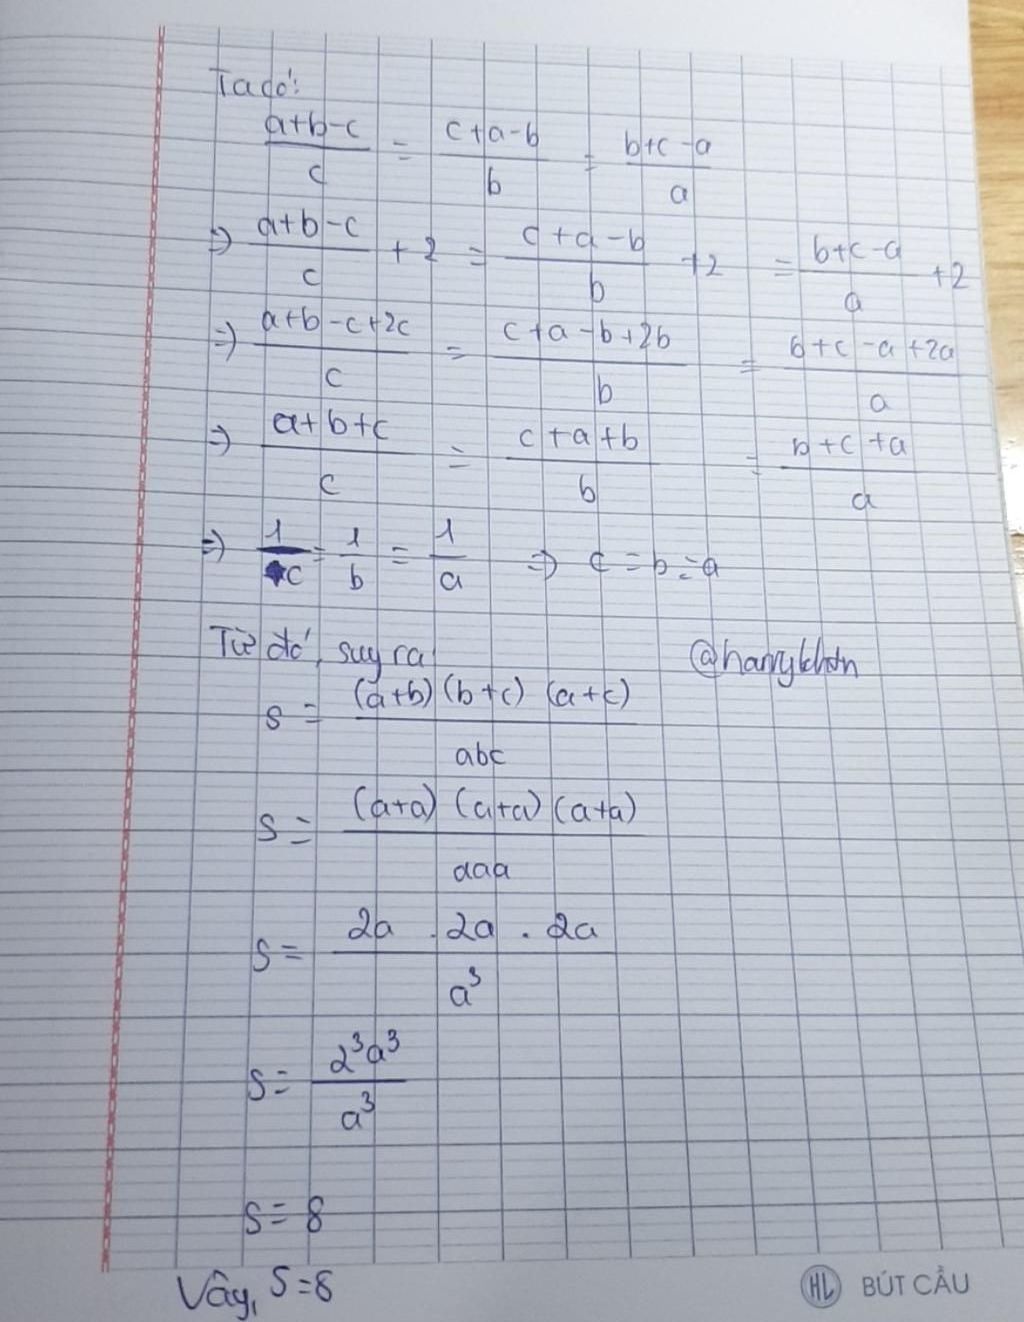 Ta có:
(a+b-c)/c = (c+a-b)/b = (b+c-a)/a
⇒ (a+b-c)/c + 2 = (c+a-b)/b + 2 = (b+c-a)/a + 2
⇒ (a+b-c+2c)/c = (c+a-b+2b)/b = (b+c-a+2a)/a
⇒ (a+b+c)/c = (c+a+b)/b = (b+c+a)/a
⇒ 1/c = 1/b = 1/a ⇒ c = b = a
Từ đó, suy ra:
@harrykhdn
S = (a+b)(b+c)(a+c)/abc
S = (a+a)(a+a)(a+a)/aaa
S = 2a . 2a . 2a/a³
S = 2³a³/a³
S = 8
Vậy, S=8
HL BÚT CẦU